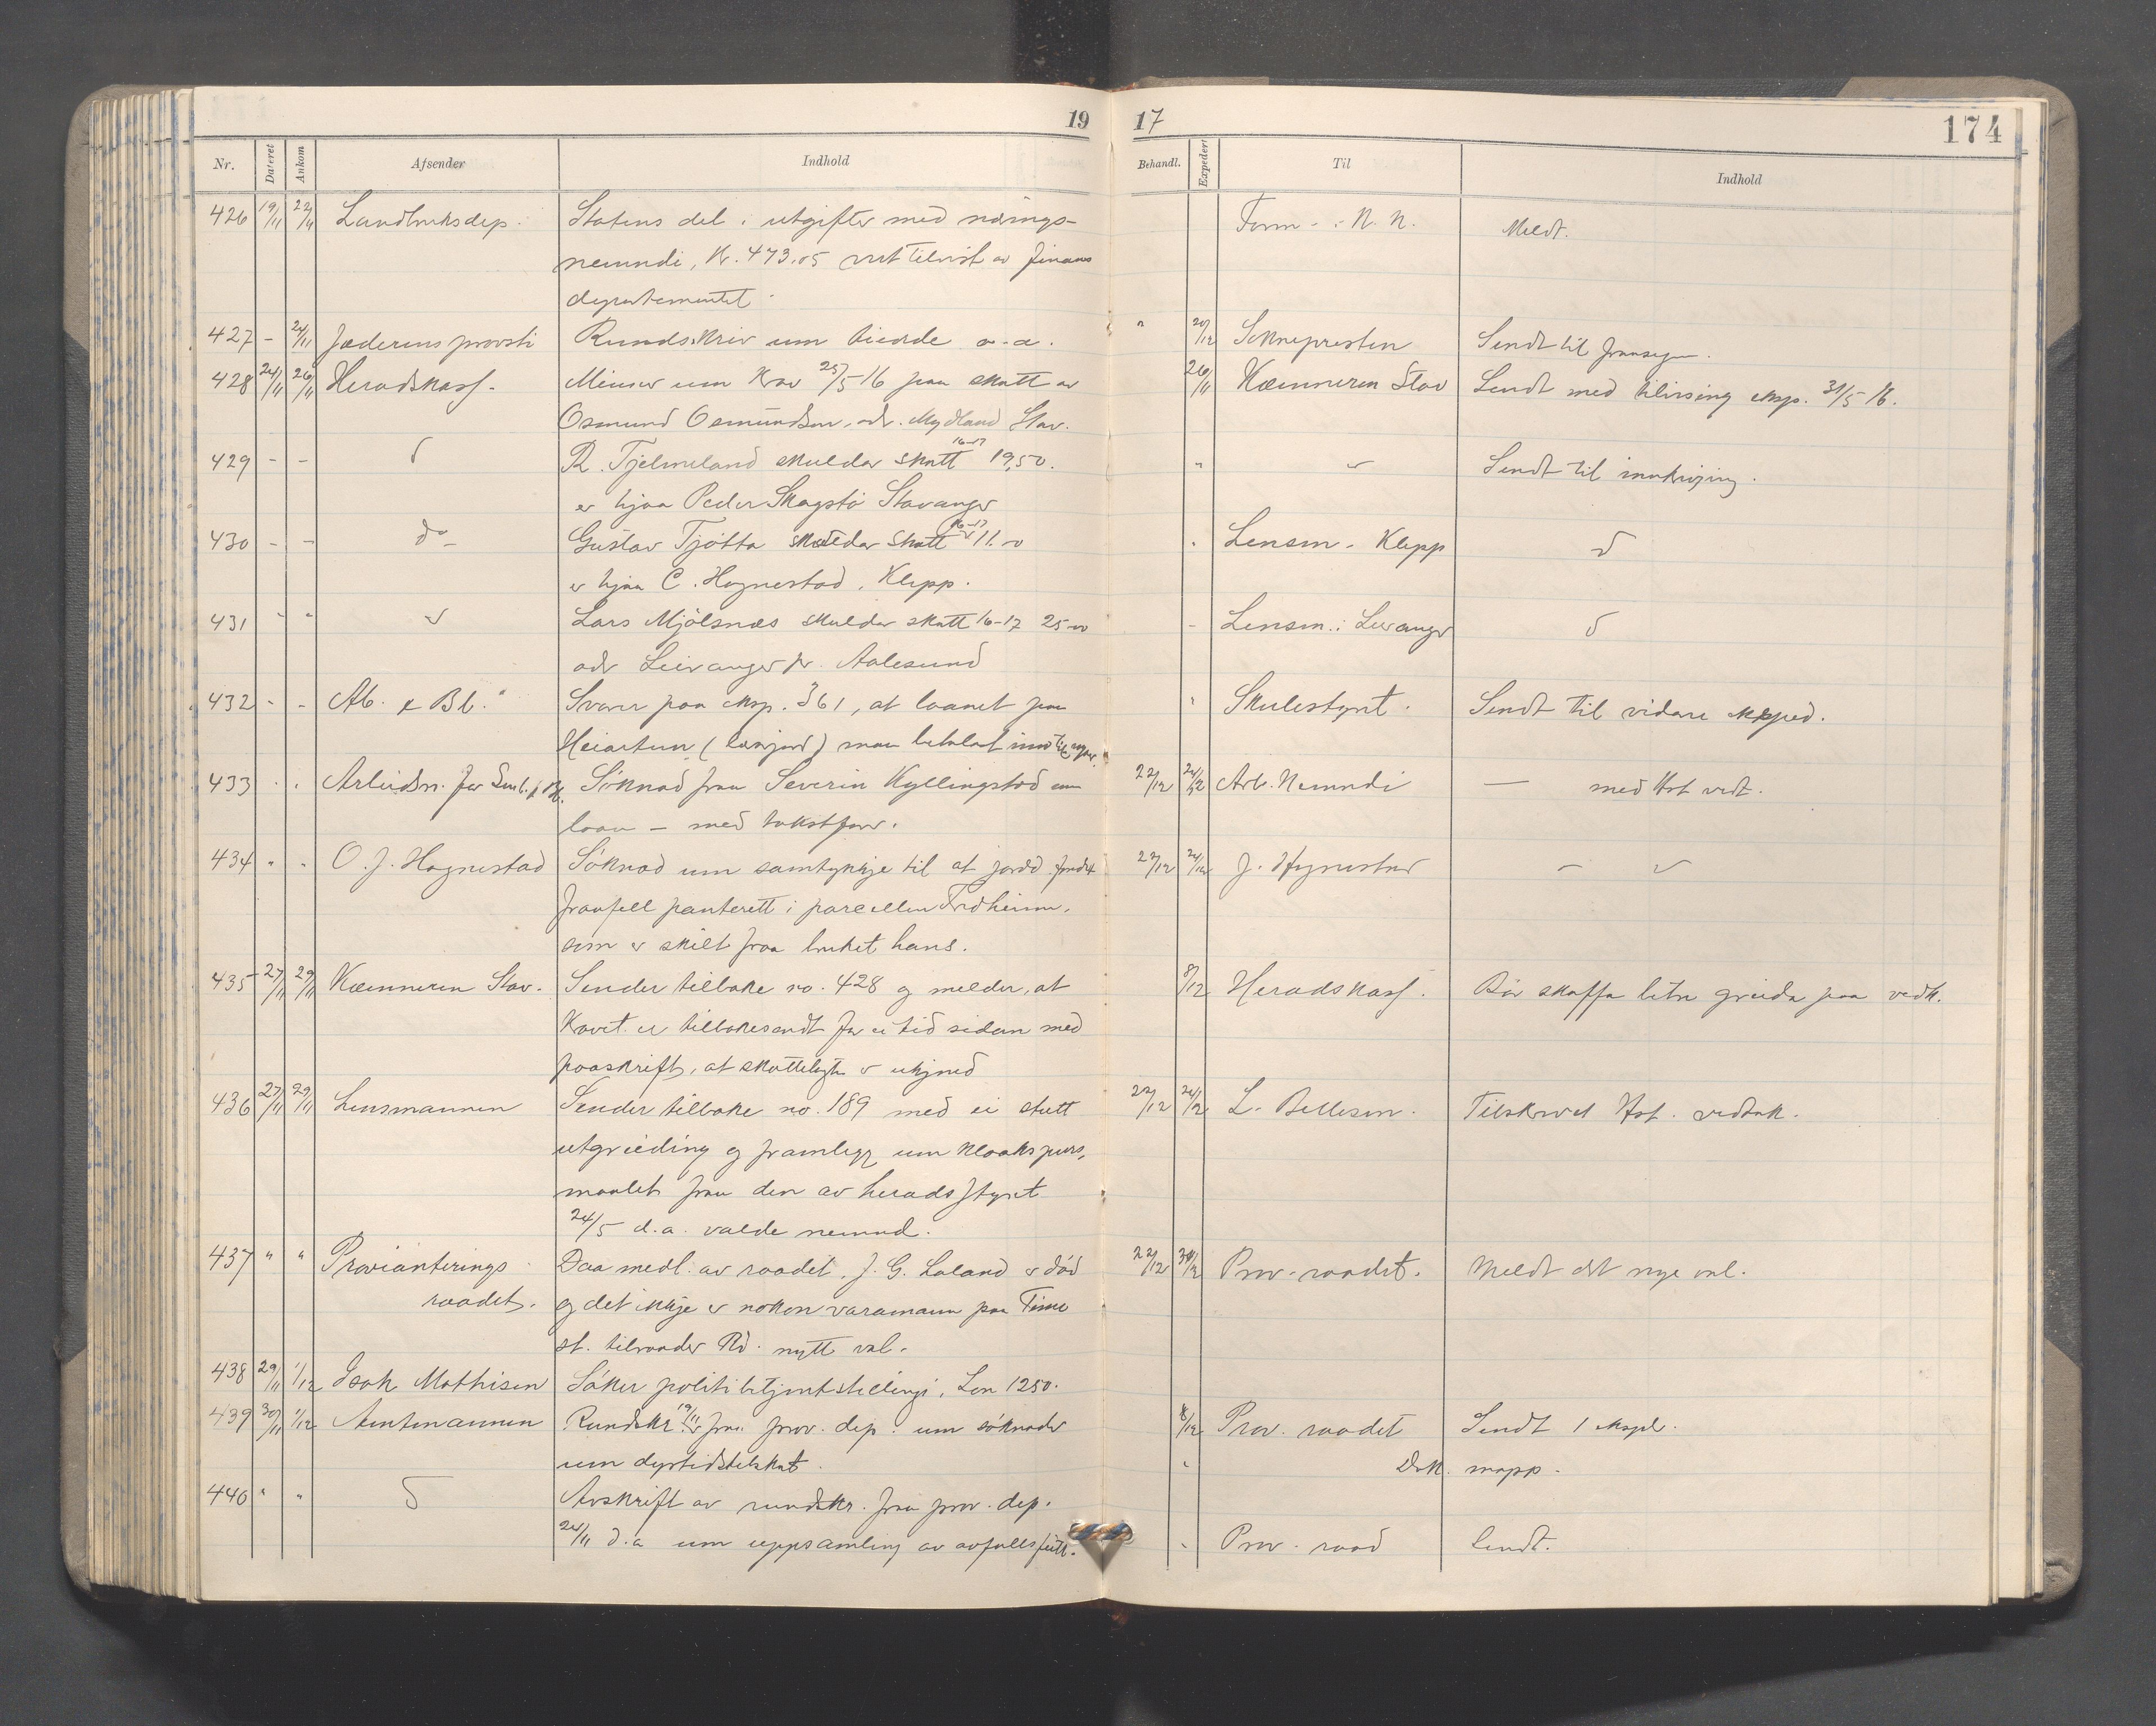 19 17
174
Nr. Dateret Ankom Afsender Indhold Behandl. Expedert Til Indhold
426 19/11 22/11 Landbruksdep. Statens del i utgifter med nærings- Form. i N. N. Meldt.
nemndi, Kr. 473.05 vert tilvist av finans
departementet.
427 - 24/11 Jæderens provsti Rundskriv um tiende o.a. " 20/12 Soknepresten Sendt til
428 24/11 26/11 Heradskass. Minner um krav 25/5 16 paa skatt av 26/11 Kæmneren Stav Sendt med tilvising eksp. 31/5 16.
Osmund Osmundsen, adr. Mydland Stav.
429 - - R. Tjelmeland skuldar skatt 16-17 19,50. " " Sendt til innkrivjing.
er hjaa Peder Skagstø Stavanger
430 - - do - Gustav Tjøtta skuldar skatt 16-17 11.- " Lensm. Klepp
er hjaa C. Hognestad, Klepp.
431 - " Lars Mjølsnes skuldar skatt 16-17 25- - Lensm. i
adr Leivanger pr. Aalesund
432 - - Ab. & Bb. Svarer paa eksp. 361, at laanet paa " Skulestyret. Sendt til vidare eksped.
Heiartun ( ) maa betalast inn
433 . . Arbeidsn. for Smb. & Bb. Söknad fraa Severin Kyllingstad um 22/12 24/12 Arb. Nemndi — med Hst vedt.
laan - med takstforr.
434 " " O. J. Hognestad Söknad um samtykkje til at 22/12 24/12 J. Hognestad -
fraafell panterett i parcellen Fredheim,
som er skilt fraa bruket hans.
435 27/11 29/11 Kæmneren Stav. Sender tilbake no. 428 og melder, at 8/12 Heradskass. Bör skaffa betre greida paa vedk.
Kravet er tilbakesendt for ei tid sidan med
paaskrift, at skattelegtn er ukjend
436 27/11 29/11 Lensmannen Sender tilbake no. 189 med ei stutt 22/12 24/12 L. Tilskrevet Hst. vedtak.
utgreiding og framlegg um kloakspurs,
maalet fraa den av heradsstyret
24/5 d.a. valde nemnd.
437 " " Provianterings Daa medl. av raadet, J. G. Laland er död 22/12 Prov. raadet. Meldt det nye val.
raadet. og det ikkje er nokon varamann paa Time
st. tilraader Rd. nytt val.
438 29/11 1/12 Isak Mathisen Söker politibetjentstellingi. Lön 1250.
439 30/11 1/12 Amtmannen Rundskr. 19/11 fraa prov. dep. um söknader 8/12 Prov. raadet Sendt 1 ekspl.
um dyrtidstilskot. " Dok. mapp.
440 " " Avskrift av rundskr. fraa prov. dep.
24/11 d.a um uppsamling av avfallsfeitt. " Prov. raad Sendt.